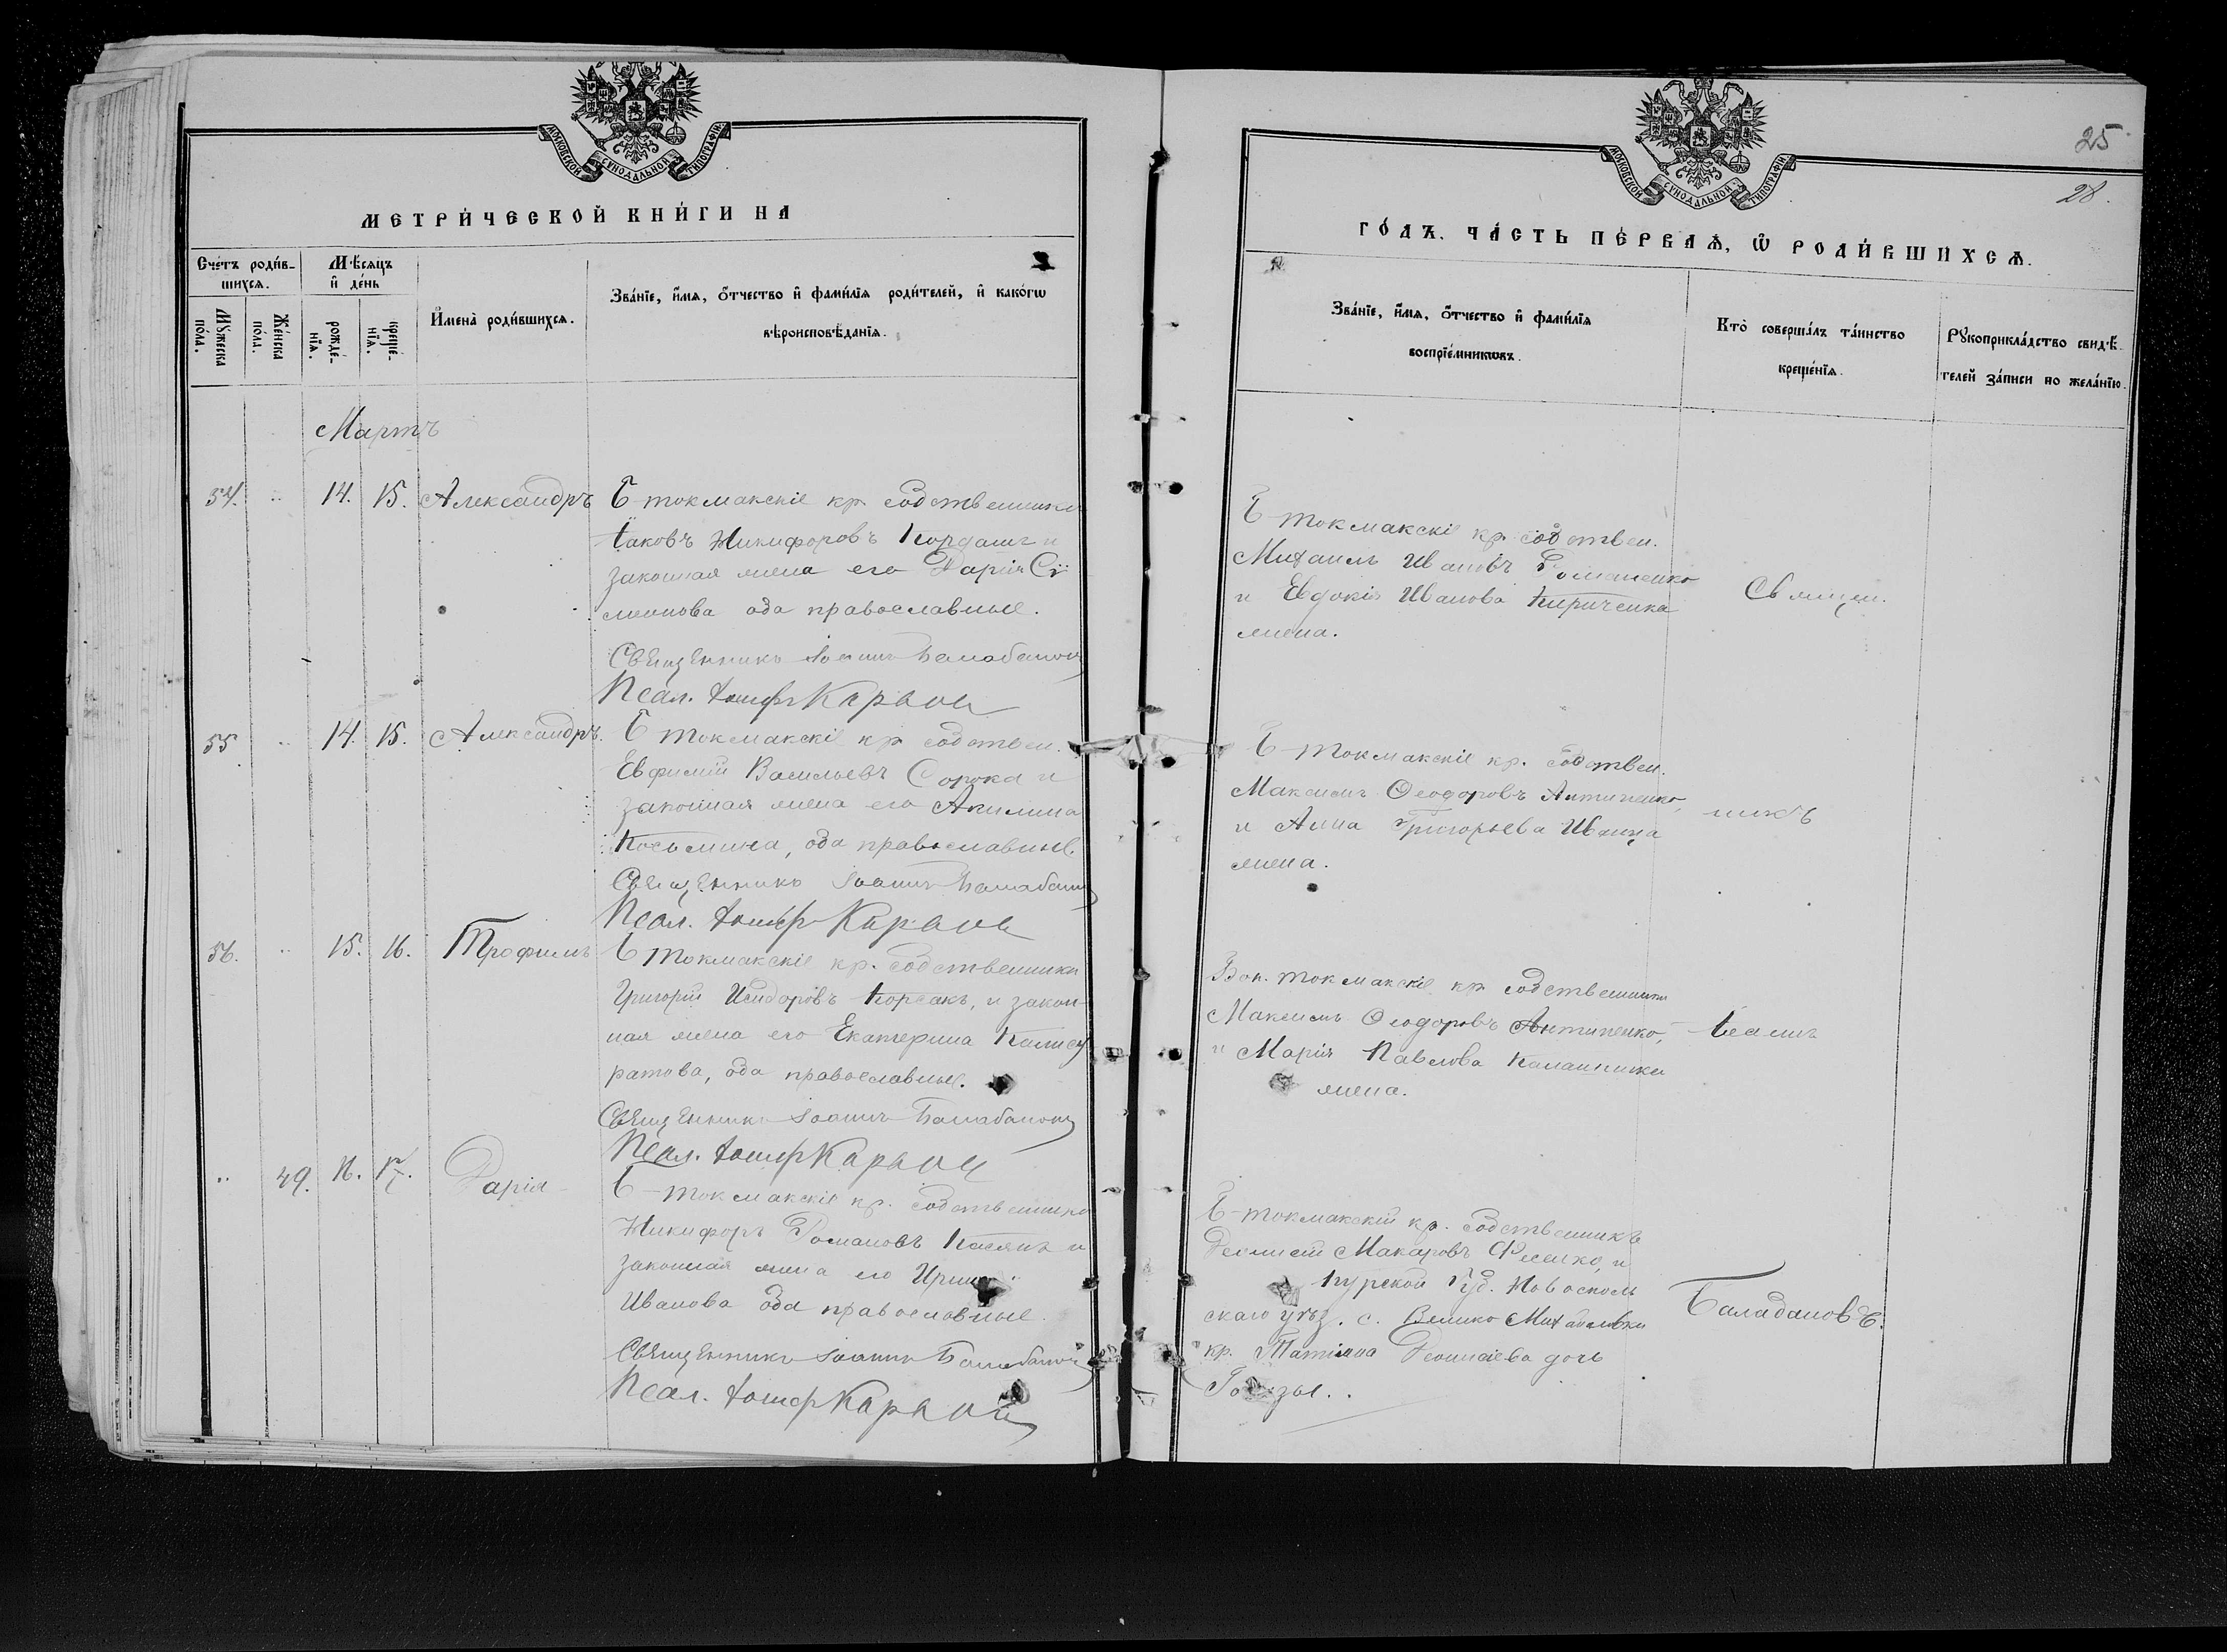 МОСКОВСКОЙ СѴНОДАЛЬНОЙ ТИПОГРАФІИ
МЕТРИ́ЧЕСКОЙ КНИ́ГИ НА
Сче́тъ роди́в-
шихсѧ.
Мѣ́сѧцъ
и҆ де́нь
Мꙋ́жеска
по́ла.
Же́нска
по́ла.
рожде́-
нїѧ.
креще́-
нїѧ.
И҆мена̀ роди́вшихсѧ.
Зва́нїе, и҆́мѧ, ѻ҆́тчество и҆ фами́лїѧ роди́телей, и҆ како́гѡ
вѣроисповѣ́данїѧ.
Мартъ
54. " 14. 15. Александръ
Б токмакскіе кр собственники
Іаковъ Никифоровъ Кордашъ и
законная жена его Дарія Сѵ
меонова оба православные.
Священникъ Іоаннъ Балабановъ
Псал. Іосифъ
55 " 14. 15. Александръ.
Б токмакскіе кр собствен.
Евфимій Васильевъ Сорока и
законная жена его Акилина
Косьмина, оба православные.
Священникъ Іоаннъ Балабановъ
Псал. Іосифъ
56. " 15. 16. Трофимъ
Б токмакскіе кр. собственники
Григорій Исидоровъ Корсакъ, и закон
ная жена его Екатерина Калист
ратова, оба православные.
Священникъ Іоаннъ Балабановъ
Псал. Іосифъ
" 49. 16. 17. Дарія
Б токмакскіе кр. собственники
Никифоръ Романовъ Касянъ и
законная жена его
Иванова оба православные.
Священникъ Іоаннъ Балабановъ
Псал. Іосифъ
25
28.
МОСКОВСКОЙ СѴНОДАЛЬНОЙ ТИПОГРАФІИ
ГО́ДЪ. ЧА́СТЬ ПЕ́РВАѦ, Ѡ҆ РОДИ́ВШИХСѦ.
Зва́нїе, и҆́мѧ, ѻ҆́тчество и҆ фами́лїѧ
воспрїе́мникѡвъ.
Кто̀ соверша́лъ та́инство
креще́нїѧ.
Рꙋкоприкла́дство свидѣ́-
телей за́писи по жела́нїю.
Б токмакскіе кр собствен.
Михаилъ Ивановъ Романенко
и Евдокія Иванова Кириченка
жена.
Священ
Б токмакскіе кр. собствен.
Максимъ Ѳеодоровъ Антипенко,
и Анна Григорьева Иваница
жена.
никъ
Бол. токмакскіе кр собственники
Максимъ Ѳеодоровъ Антипенко,
и Марія Павлова
жена.
Іоаннъ
Б токмакскій кр. собственникъ
Макаровъ Фесенко, и
Курской губ. Новосколь
скаго уѣз. с. Велико Михайловки
кр. Татіана дочь
Балабановъ.